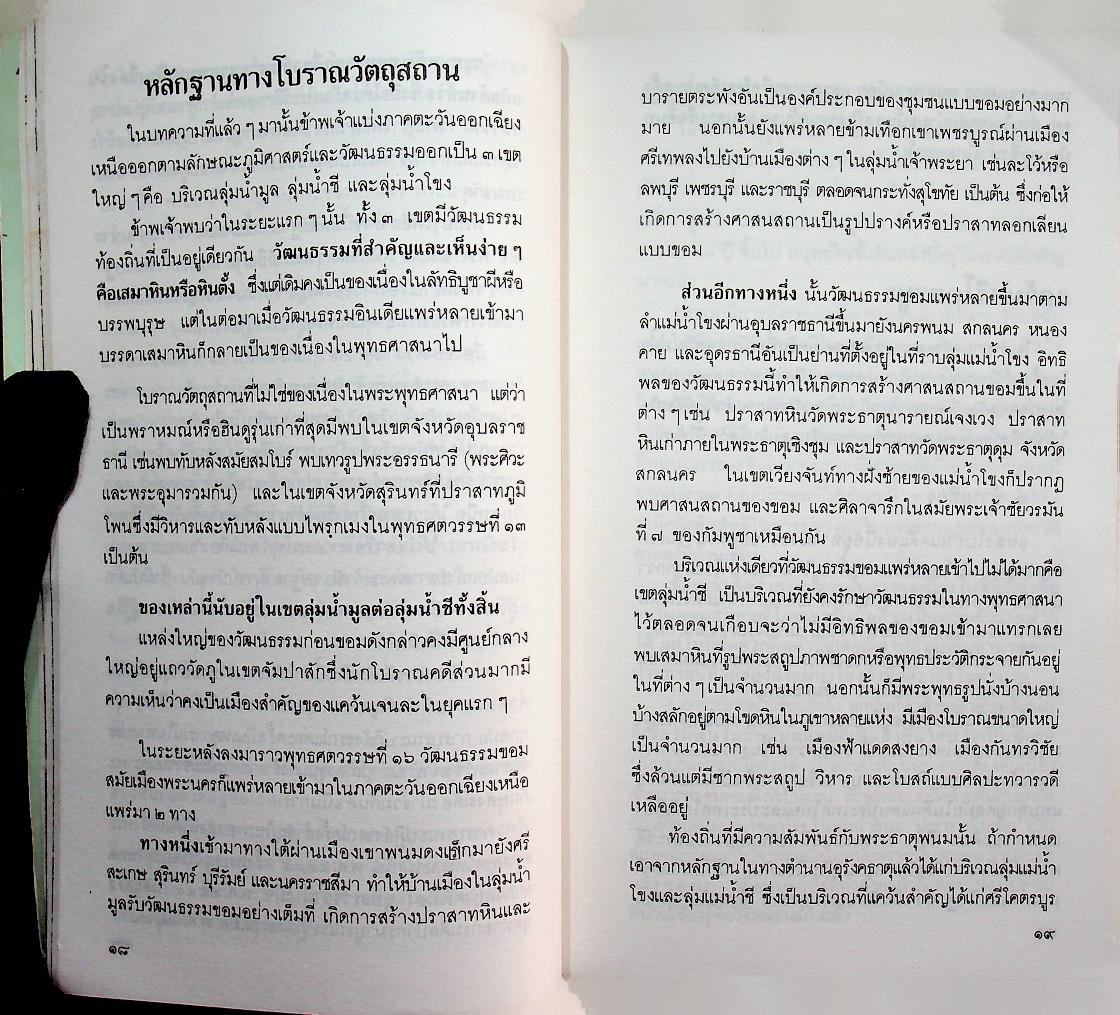 หลักฐานทางโบราณวัตถุสถาน
ในบทความที่แล้ว ๆ มานั้นข้าพเจ้าแบ่งภาคตะวันออกเฉียง
เหนือออกตามลักษณะภูมิศาสตร์และวัฒนธรรมออกเป็น ๓ เขต
ใหญ่ ๆ คือ บริเวณลุ่มน้ำมูล ลุ่มน้ำชี และลุ่มน้ำโขง
ข้าพเจ้าพบว่าในระยะแรก ๆ นั้น ทั้ง ๓ เขตมีวัฒนธรรม
ท้องถิ่นที่เป็นอยู่เดียวกัน วัฒนธรรมที่สำคัญและเห็นง่าย ๆ
คือเสมาหินหรือหินตั้ง ซึ่งแต่เดิมคงเป็นของเนื่องในลัทธิบูชาผีหรือ
บรรพบุรุษ แต่ในต่อมาเมื่อวัฒนธรรมอินเดียแพร่หลายเข้ามา
บรรดาเสมาหินก็กลายเป็นของเนื่องในพุทธศาสนาไป
โบราณวัตถุสถานที่ไม่ใช่ของเนื่องในพระพุทธศาสนา แต่ว่า
เป็นพราหมณ์หรือฮินดูรุ่นเก่าที่สุดมีพบในเขตจังหวัดอุบลราช
ธานี เช่นพบทับหลังสมัยสมโบร์ พบเทวรูปพระอรรธนารี (พระศิวะ
และพระอุมารวมกัน) และในเขตจังหวัดสุรินทร์ที่ปราสาทภูมิ
โพนซึ่งมีวิหารและทับหลังแบบไพรุกเมงในพุทธศตวรรษที่ ๑๓
เป็นต้น
ของเหล่านี้นับอยู่ในเขตลุ่มน้ำมูลต่อลุ่มน้ำชีทั้งสิ้น
แหล่งใหญ่ของวัฒนธรรมก่อนขอมดังกล่าวคงมีศูนย์กลาง
ใหญ่อยู่แถววัดภูในเขตจัมปาสักซึ่งนักโบราณคดีส่วนมากมี
ความเห็นว่าคงเป็นเมืองสำคัญของแคว้นเจนละในยุคแรก ๆ
ในระยะหลังลงมาราวพุทธศตวรรษที่ ๑๖ วัฒนธรรมขอม
สมัยเมืองพระนครก็แพร่หลายเข้ามาในภาคตะวันออกเฉียงเหนือ
แพร่มา ๒ ทาง
ทางหนึ่งเข้ามาทางใต้ผ่านเมืองเขาพนมดงเร็กมายังศรี
สะเกษ สุรินทร์ บุรีรัมย์ และนครราชสีมา ทำให้บ้านเมืองในลุ่มน้ำ
มูลรับวัฒนธรรมขอมอย่างเต็มที่ เกิดการสร้างปราสาทหินและ
๑๘
บารายตระพังอันเป็นองค์ประกอบของชุมชนแบบขอมอย่างมาก
มาย นอกนั้นยังแพร่หลายข้ามเทือกเขาเพชรบูรณ์ผ่านเมือง
ศรีเทพลงไปยังบ้านเมืองต่าง ๆ ในลุ่มน้ำเจ้าพระยา เช่นละโว้หรือ
ลพบุรี เพชรบุรี และราชบุรี ตลอดจนกระทั่งสุโขทัย เป็นต้น ซึ่งก่อให้
เกิดการสร้างศาสนสถานเป็นรูปปรางค์หรือปราสาทลอกเลียน
แบบขอม
ส่วนอีกทางหนึ่ง นั้นวัฒนธรรมขอมแพร่หลายขึ้นมาตาม
ลำแม่น้ำโขงผ่านอุบลราชธานีขึ้นมายังนครพนม สกลนคร หนอง
คาย และอุดรธานีอันเป็นย่านที่ตั้งอยู่ในที่ราบลุ่มแม่น้ำโขง อิทธิ
พลของวัฒนธรรมนี้ทำให้เกิดการสร้างศาสนสถานขอมขึ้นในที่
ต่าง ๆ เช่น ปราสาทหินวัดพระธาตุนารายณ์เจงเวง ปราสาท
หินเก่าภายในพระธาตุเชิงชุม และปราสาทวัดพระธาตุดุม จังหวัด
สกลนคร ในเขตเวียงจันท์ทางฝั่งซ้ายของแม่น้ำโขงก็ปรากฏ
พบศาสนสถานของขอม และศิลาจารึกในสมัยพระเจ้าชัยวรมัน
ที่ ๗ ของกัมพูชาเหมือนกัน
บริเวณแห่งเดียวที่วัฒนธรรมขอมแพร่หลายเข้าไปไม่ได้มากคือ
เขตลุ่มน้ำชี เป็นบริเวณที่ยังคงรักษาวัฒนธรรมในทางพุทธศาสนา
ไว้ตลอดจนเกือบจะว่าไม่มีอิทธิพลของขอมเข้ามาแทรกเลย
พบเสมาหินที่รูปพระสถูปภาพชาดกหรือพุทธประวัติกระจายกันอยู่
ในที่ต่าง ๆ เป็นจำนวนมาก นอกนั้นก็มีพระพุทธรูปนั่งบ้างนอน
บ้างสลักอยู่ตามโขดหินในภูเขาหลายแห่ง มีเมืองโบราณขนาดใหญ่
เป็นจำนวนมาก เช่น เมืองฟ้าแดดสงยาง เมืองกันทรวิชัย
ซึ่งล้วนแต่มีซากพระสถูป วิหาร และโบสถ์แบบศิลปะทวารวดี
เหลืออยู่
ท้องถิ่นที่มีความสัมพันธ์กับพระธาตุพนมนั้น ถ้ากำหนด
เอาจากหลักฐานในทางตำนานอุรังคธาตุแล้วได้แก่บริเวณลุ่มแม่น้ำ
โขงและลุ่มแม่น้ำชี ซึ่งเป็นบริเวณที่แคว้นสำคัญได้แก่ศรีโคตรบูร
๑๙